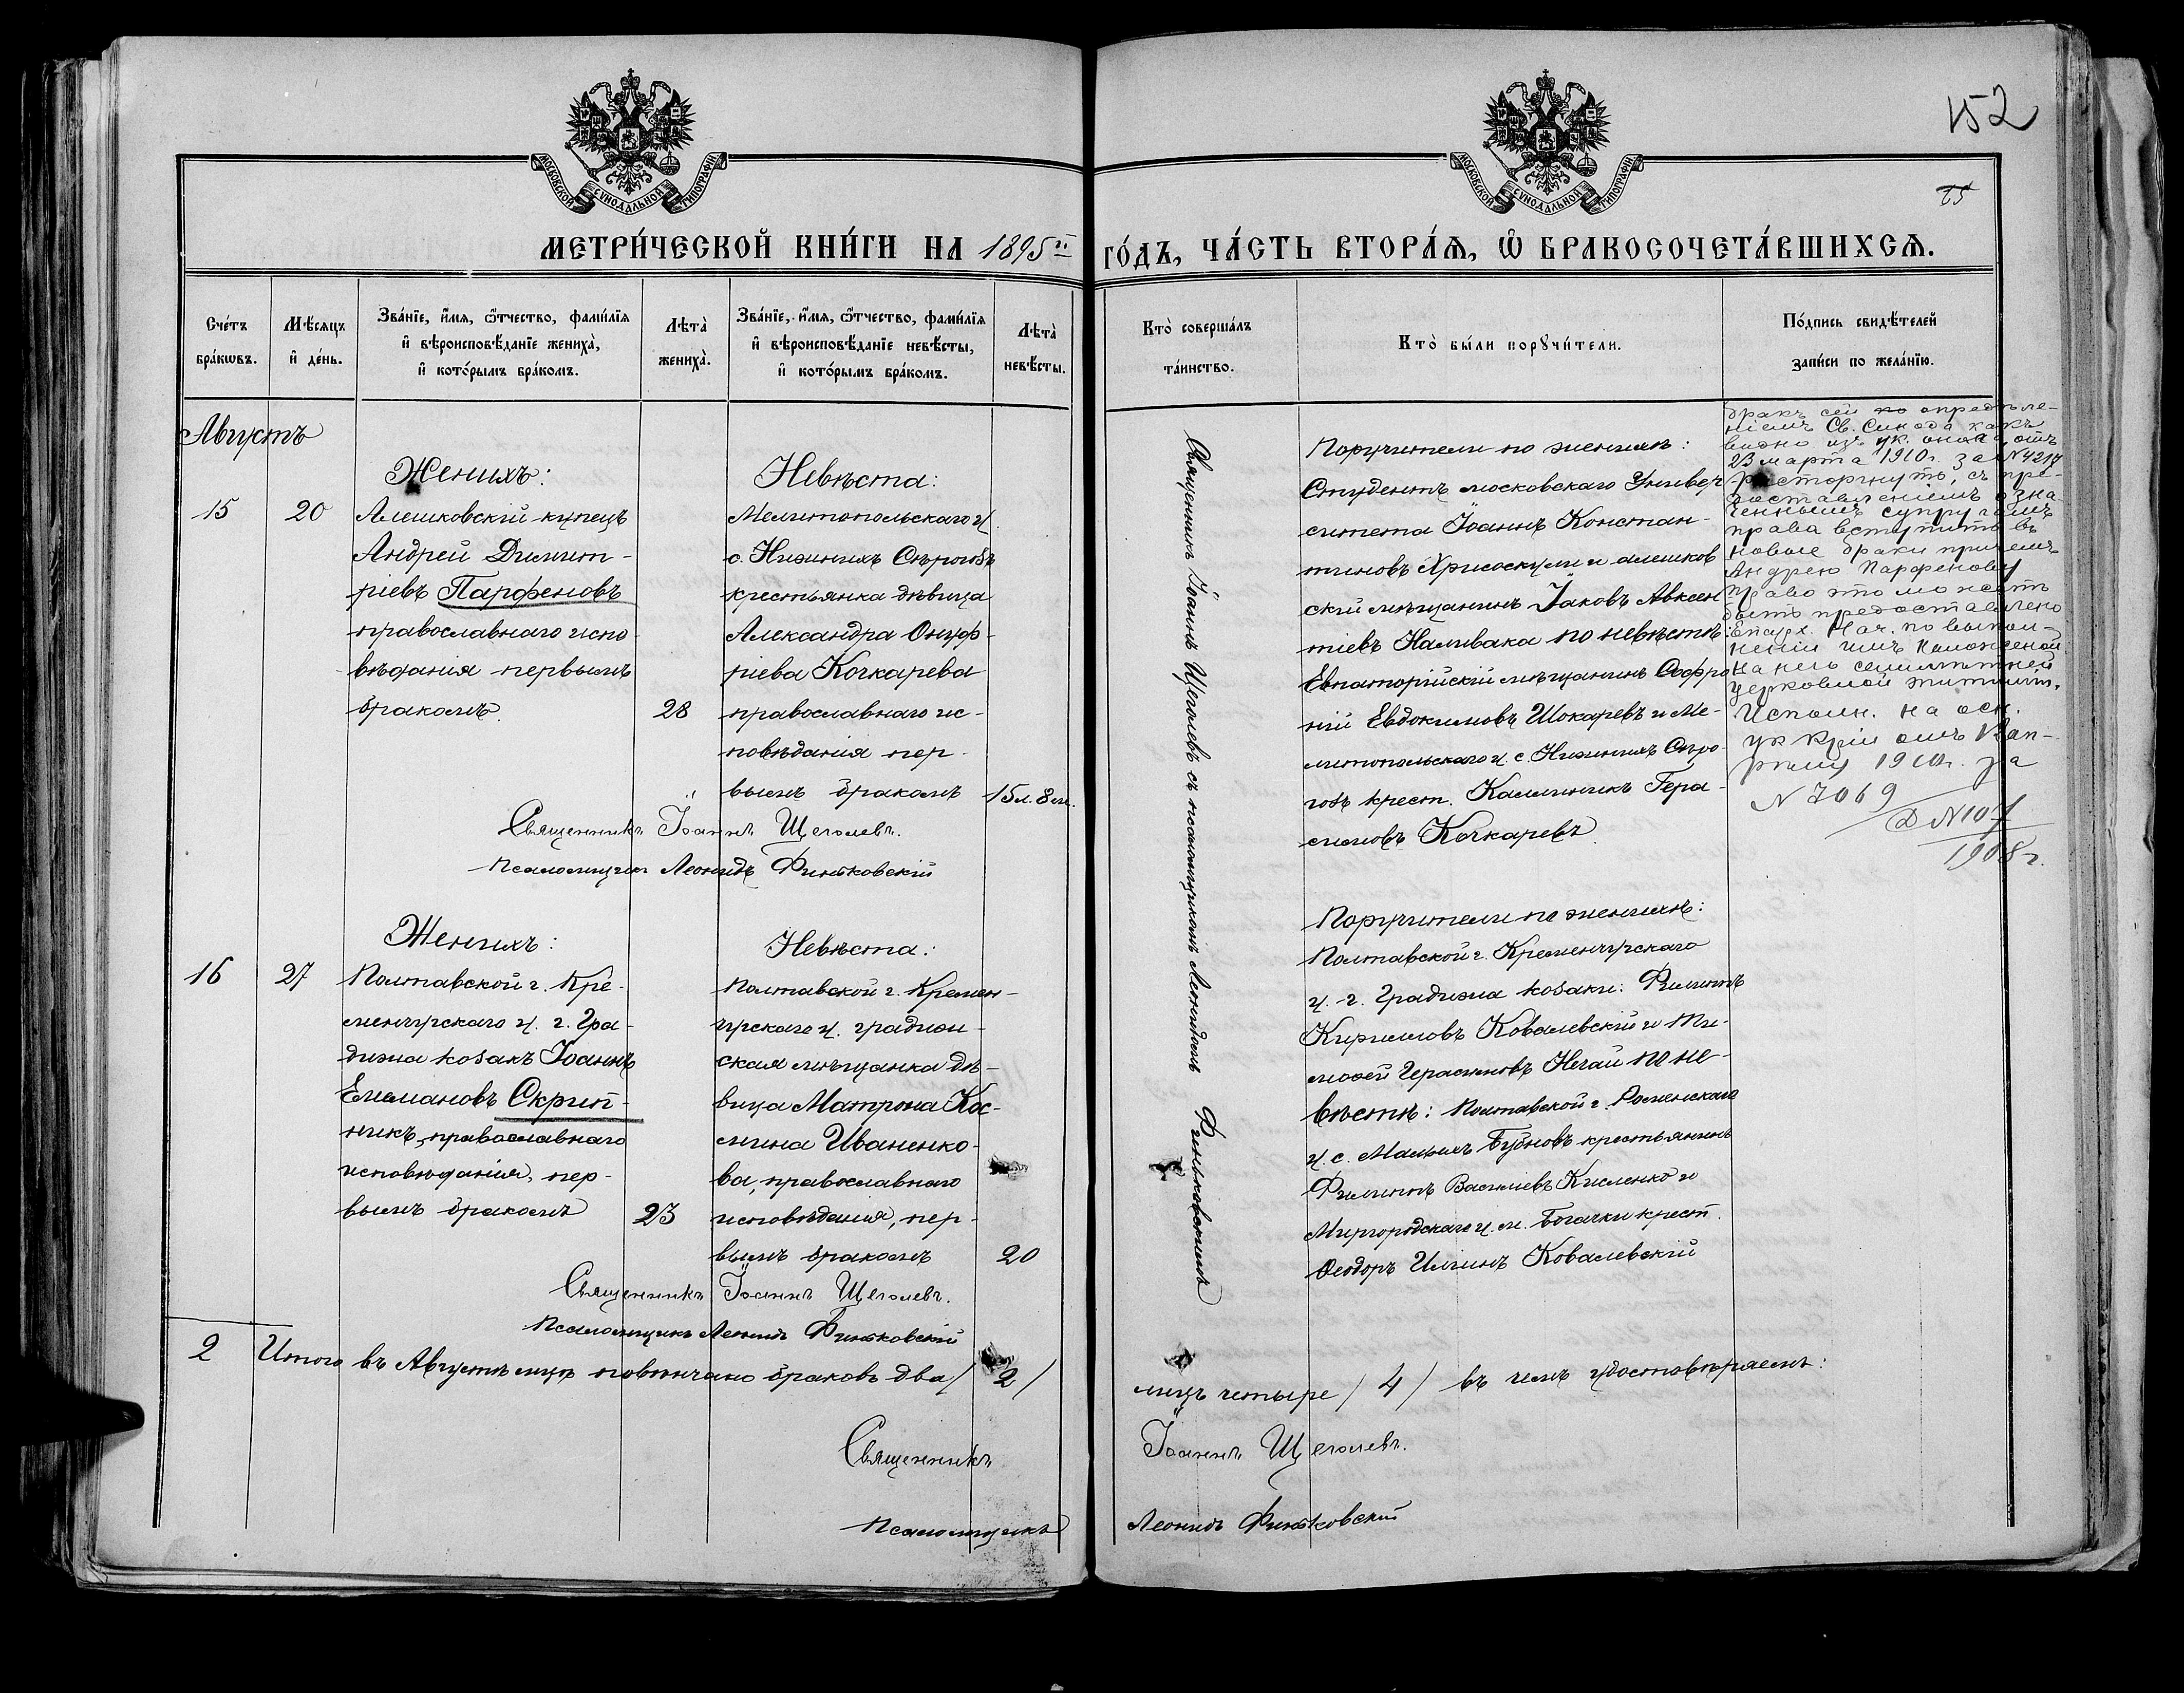 152
75
МОСКОВСКОЙ СѴНОДАЛЬНОЙ ТИПОГРАФІИ
МОСКОВСКОЙ СѴНОДАЛЬНОЙ ТИПОГРАФІИ
МЕТРИ́ЧЕСКОЙ КНИ́ГИ НА 1895й
ГО́ДЪ, ЧА́СТЬ ВТОРА́Ѧ, Ѡ БРАКОСОЧЕТА́ВШИХСѦ.
Сче́тъ бра́кѡвъ.
Мѣ́сяцъ и де́нь.
Зва́нїе, и́мя, ѻ́тчество, фами́лїя и вѣроисповѣ́данїе жениха̀, и кото́рымъ бра́комъ.
Лѣта̀ жениха̀.
Зва́нїе, и́мя, ѻ́тчество, фами́лїя и вѣроисповѣ́данїе невѣ́сты, и кото́рымъ бра́комъ.
Лѣта̀ невѣ́сты.
Кто̀ соверша́лъ та́инство.
Кто̀ бы́ли порꙋчи́тели.
По́дпись свидѣ́телей за́писи по жела́нїю.
Августъ
15
20
Женихъ:
Алешковскій купецъ
Андрей Димит-
ріевъ Парфеновъ
православнаго испо-
вѣданія первымъ
бракомъ.
28
Невѣста:
Мелитопольскаго у.
с. Нижнихъ Сѣрогозъ
крестьянка дѣвица
Александра Онуф-
ріева Кочкарева
православнаго ис-
повѣданія пер-
вымъ бракомъ
15 л. 8 м.
Священникъ Іоаннъ Щеголевъ.
Псаломщикъ Леонидъ Финьковскій
Священникъ Іоаннъ Щеголевъ съ псаломщикомъ Леонидомъ Финьковскимъ
Поручители по женихѣ:
Студентъ московскаго Универ
ситета Іоаннъ Констан-
тиновъ Хрисоскули и алешков
скій мѣщанинъ Іаковъ Авксен
тіевъ Наливака по невѣстѣ:
Евпаторійскій мѣщанинъ Софро
ній Евдокимовъ Шокаревъ и Ме-
литопольскаго у. с. Нижнихъ Сѣро-
гозъ крест. Каллиникъ Гера-
симовъ Кочкаревъ
бракъ сей по опредѣле-
ніемъ Св. Синода какъ
видно изъ ук. онаго отъ
23 марта 1910 г. за № 4217
расторгнутъ, съ пре-
доставленіемъ озна-
ченнымъ супругамъ
права вступить въ
новые браки причемъ
Андрею Парфенову
право это можетъ
быть предоставлено
Епарх. Нач. по выпол-
неніи имъ наложенной
на него семилѣтней
церковной эпитиміи.
Исполн. на осн.
ук Крiи отъ
1910 г. за
№ 7069
Д № 107
1908 г.
16
27
Женихъ:
Полтавской г. Кре-
менчугскаго у. г. Гра-
дижа козакъ Іоаннъ
Емельяновъ Скрип-
никъ, православнаго
исповѣданія, пер-
вымъ бракомъ
23
Невѣста:
Полтавской г. Кремен-
чугскаго у. градиж-
ская мѣщанка дѣ-
вица Матрона Кос-
мина Иваненко-
ва, православнаго
исповѣданія, пер-
вымъ бракомъ
20
Священникъ Іоаннъ Щеголевъ.
Псаломщикъ Леонидъ Финьковскій
Поручители по женихѣ:
Полтавской г. Кременчугскаго
у. г. Градижа козаки: Филиппъ
Кирилловъ Ковалевскій и Ти-
моѳей Герасимовъ Негай по не-
вѣстѣ: Полтавской г. Роменскаго
у. с. Малыхъ Бубновъ крестьянинъ
Филиппъ Васильевъ Кисленко и
Миргородскаго у. м. Богачки крест.
Ѳеодоръ Илiинъ Ковалевскій
2
Итого въ Августѣ мцѣ повѣнчано браковъ два / 2 /
лицъ четыре / 4 / въ чемъ удостовѣряемъ:
Священникъ
Іоаннъ Щеголевъ.
Псаломщикъ
Леонидъ Финьковскій